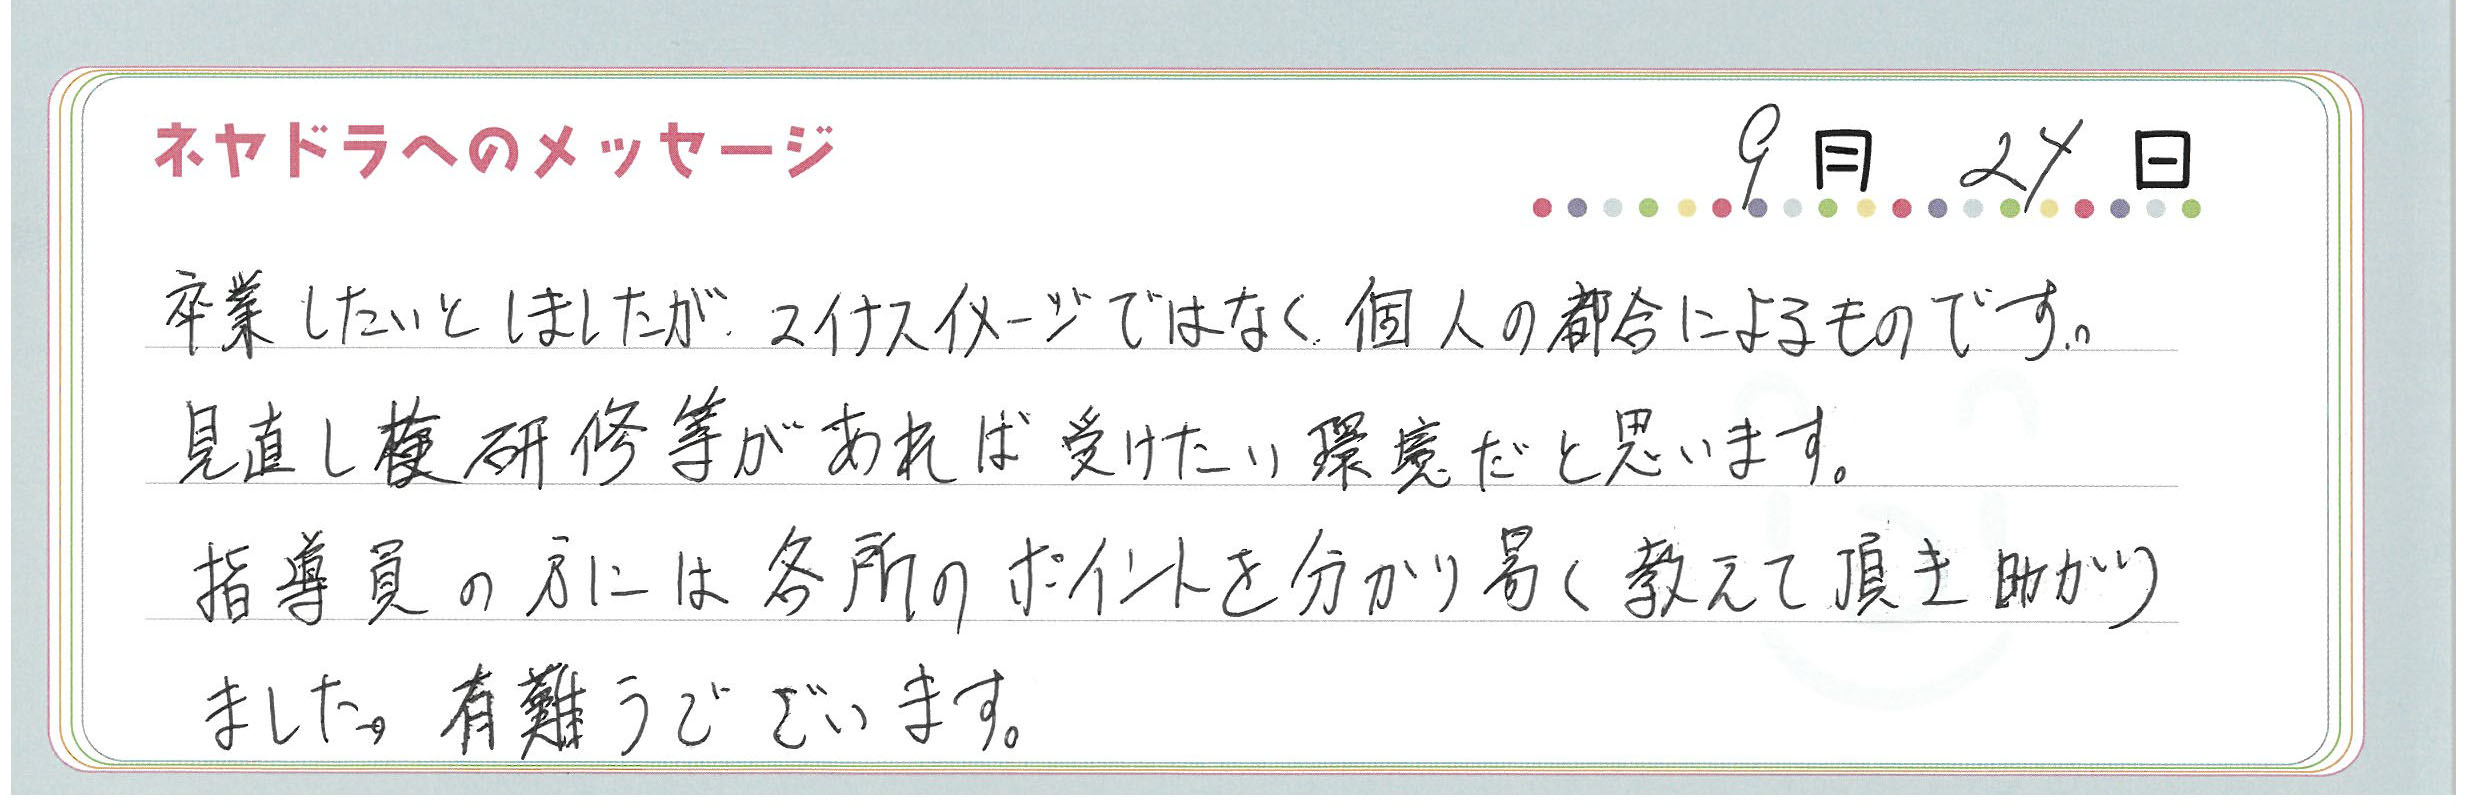 ネヤドラへのメッセージ
9月 24日
卒業したいとしましたが、マイナスイメージではなく、個人の都合によるものです。
見直し 研修等があれば受けたい環境だと思います。
指導員の方には各所のポイントを分かり易く教えて頂き助かり
ました。有難うございます。